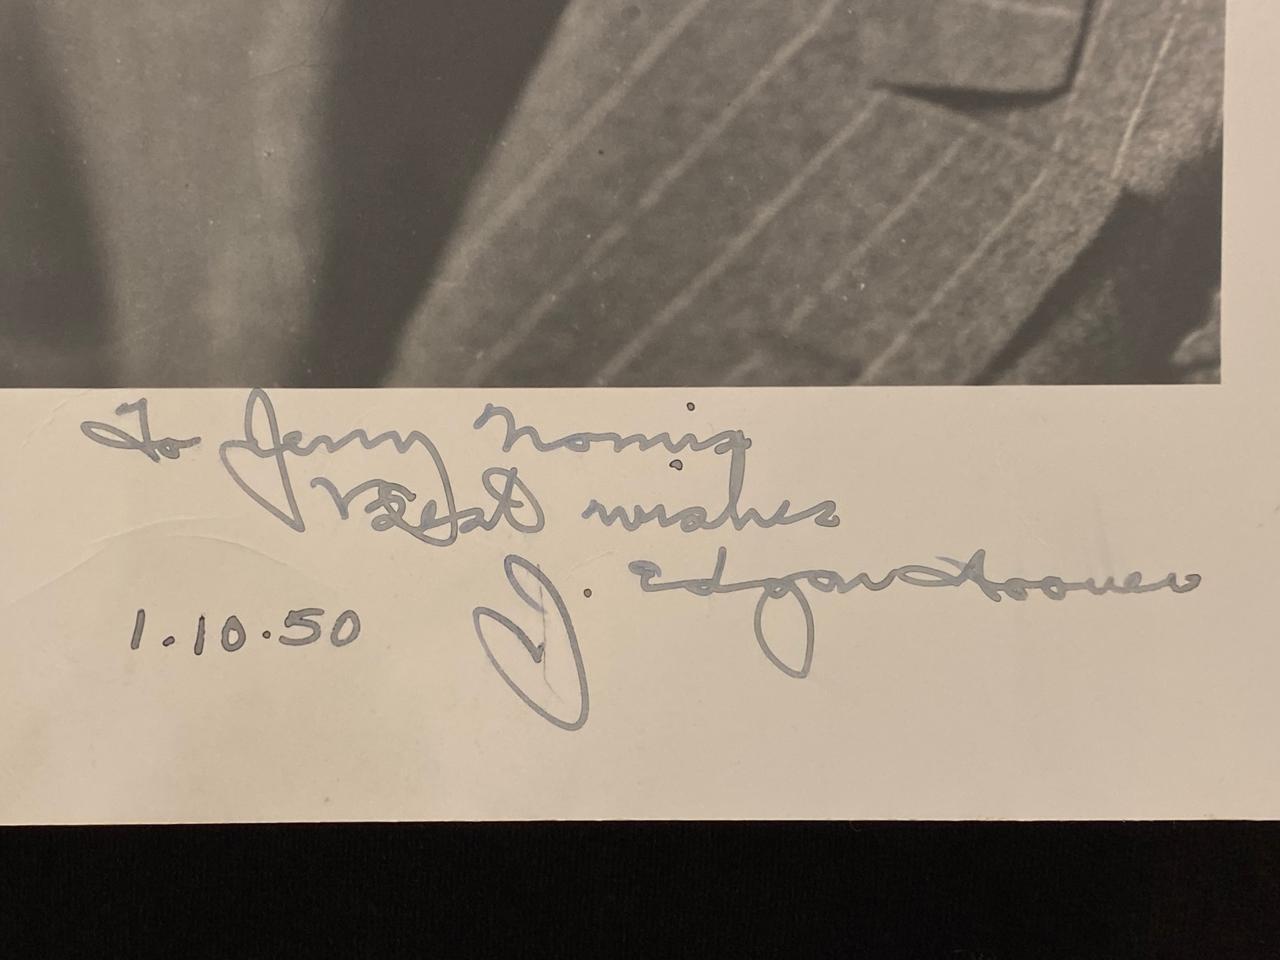 To Jerry Nomis
Best wishes
J. Edgar Hoover
1.10.50